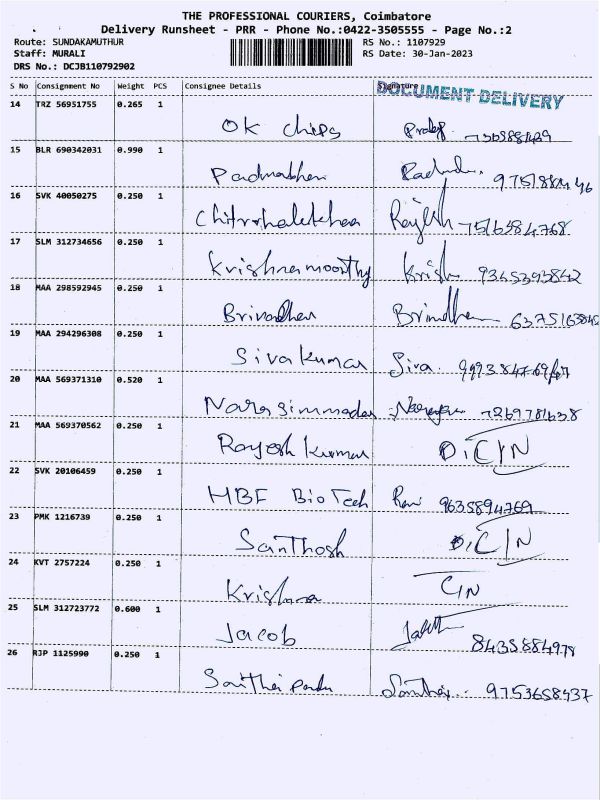 THE PROFESSIONAL COURIERS, Coimbatore
Delivery Runsheet - PRR - Phone No.:0422-3505555 - Page No.:2
Route: SUNDAKAMUTHUR RS No.: 1107929
Staff: MURALI RS Date: 30-Jan-2023
DRS No.: DCJB110792902
S No Consignment No Weight PCS Consignee Details Signature
DOCUMENT DELIVERY
14 TRZ 56951755 0.265 1
OK chips
15 BLR 690342031 0.990 1
Padmabhan
16 SVK 40050275 0.250 1
Rajesh 7516384768
17 SLM 312734656 0.250 1
Krishnamoorthy Krish 9365393842
18 MAA 298592945 0.250 1
Brindha
19 MAA 294296308 0.250 1
Sivakumar Siva
20 MAA 569371310 0.520 1
21 MAA 569370562 0.250 1
Rajesh kumar D.C/N
22 SVK 20106459 0.250 1
HBF BioTech Ravi 9635894769
23 PMK 1216739 0.250 1
Santhosh D.C/N
24 KVT 2757224 0.250 1
Krishna C/N
25 SLM 312723772 0.600 1
Jacob 8435884978
26 RJP 1125990 0.250 1
9753658437